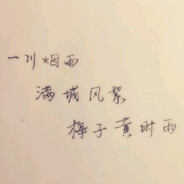 一川烟雨
满城风絮
梅子黄时雨